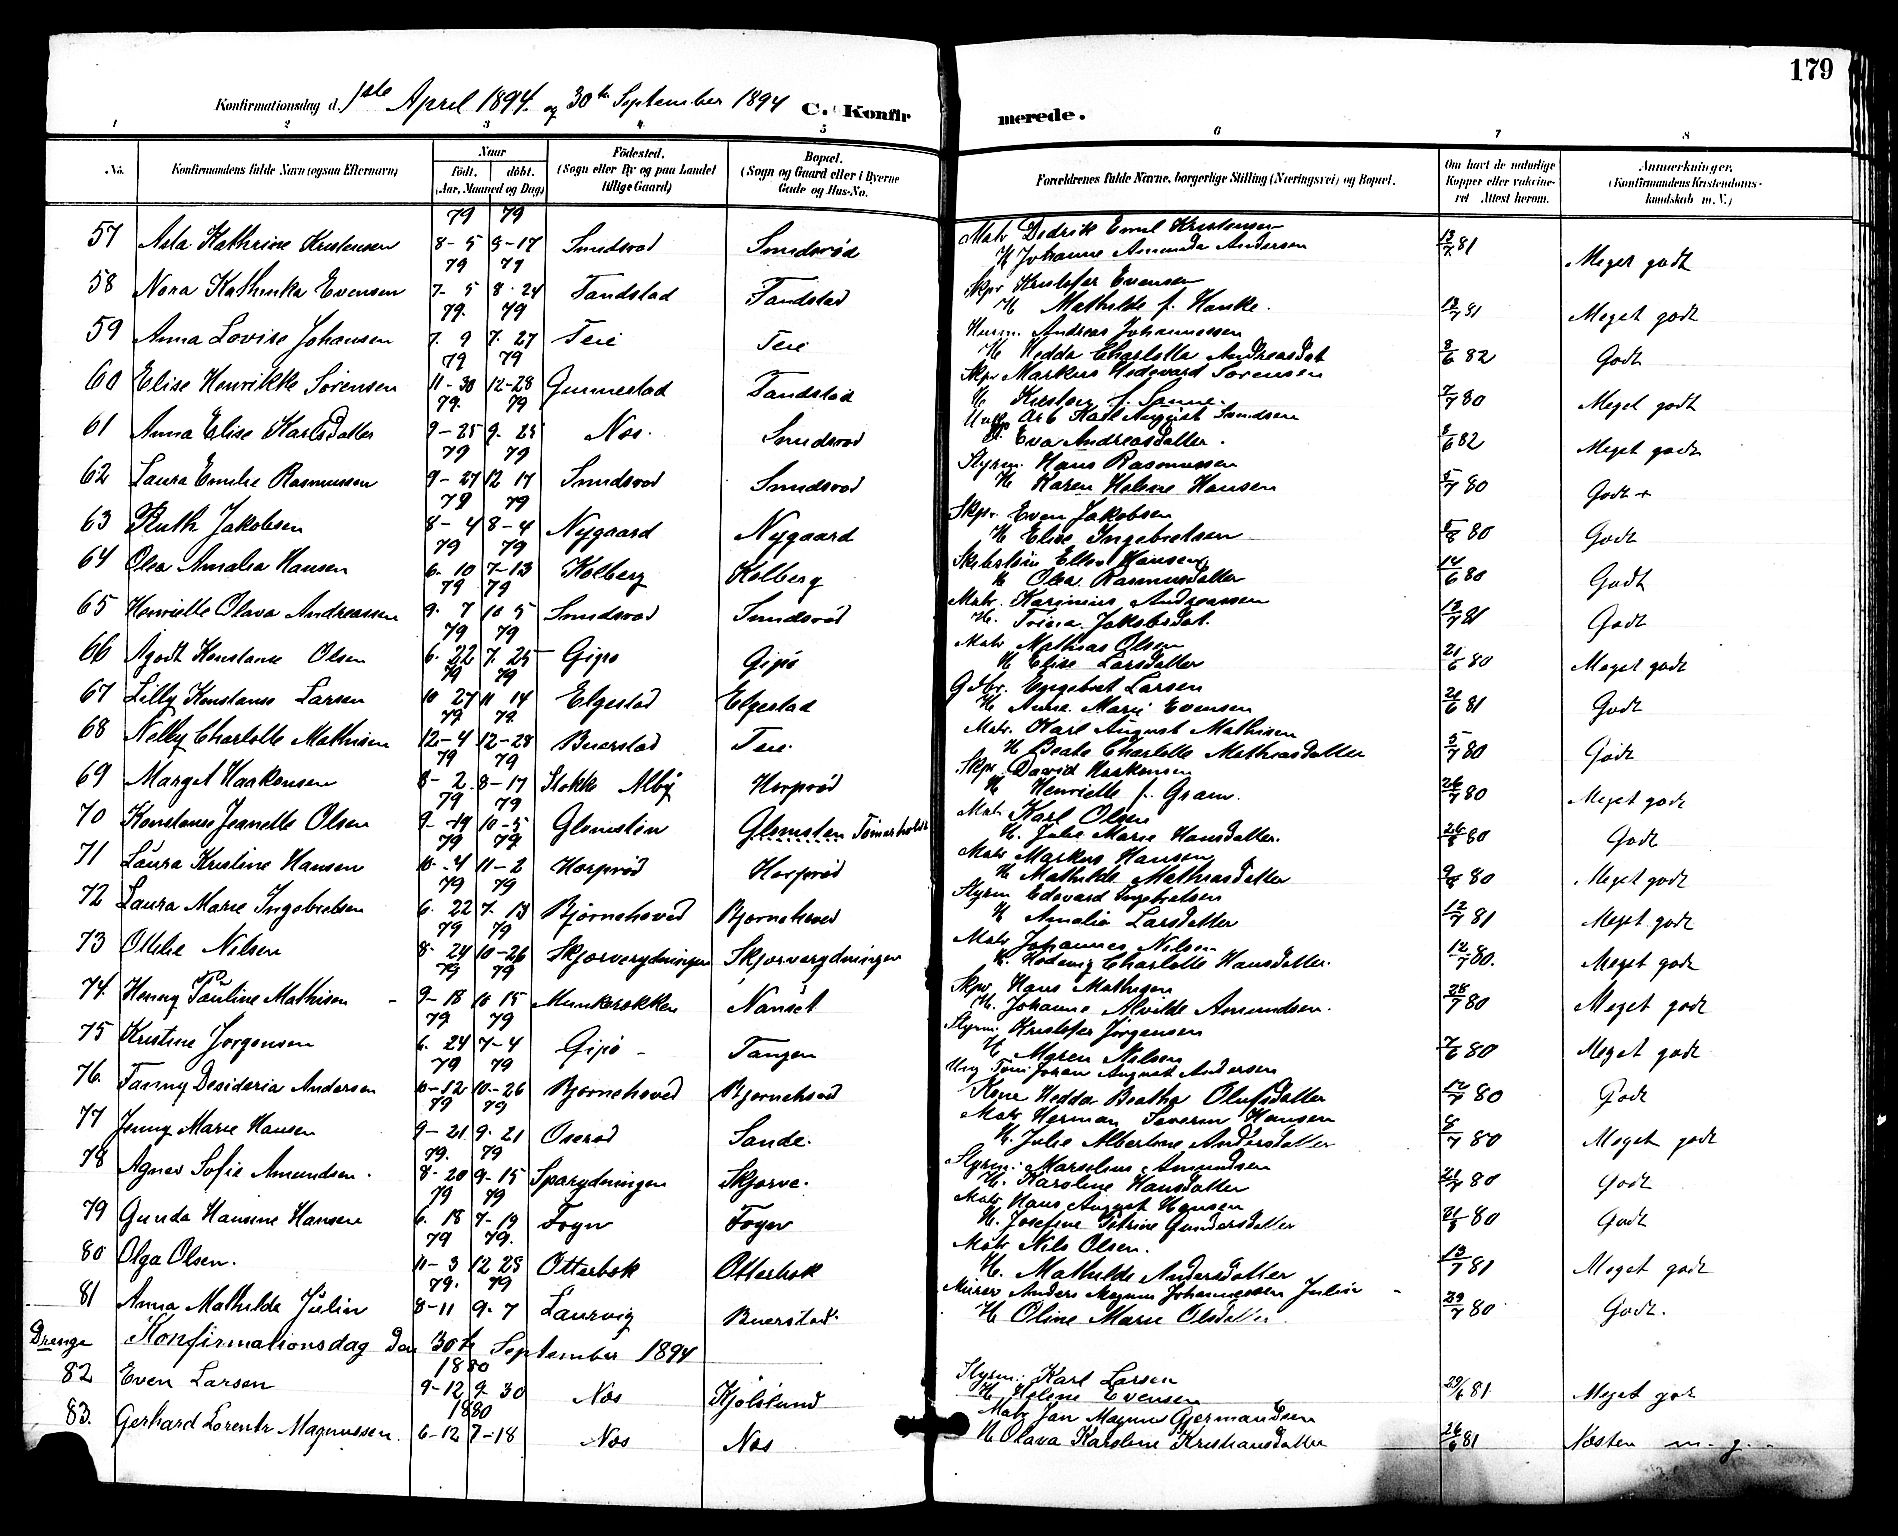 179
Konfirmationsdag d. 1ste April 1894. og 30te September 1894 C. Konfirmerede.
1 2 3 4 5 6 7 8
No. Konfirmandens fulde Navn (ogsaa Efternavn) Naar født. døbt. (Aar, Maaned og Dag) Fødested. (Sogn eller By og paa Landet tillige Gaard) Bopæl. (Sogn og Gaard eller i Byerne Gade og Hus-No. Forældrenes fulde Navne, borgerlige Stilling (Næringsvei) og Bopæl. Om havt de naturlige Kopper eller vaccineret Attest herom. Anmærkninger. (Konfirmandens Kristendomskundskab m. V.)
79 79
57 Asta Kathrine Kristensen 8-5 8-17 Smidsrod Smidsrød Matr Didrik Emil Kristensen 13/7 81 Meget godt
H Johanne Amunda Andersen
79 79
58 Nora Kathinka Evensen 7-5 8-24 Tandstad Tandstad Skpr Kristofer Evensen 13/7 81 Meget godt
H Mathilde f. Hanke.
79. 79
59 Anna Lovise Johansen 7. 9 7. 27 Teie Teie Andreas Johannessen 8/6 82 Godt
H Hedda Charlotta Andreasdat
79 79
60 Elise Henrikke Sørensen 11-30 12-28 Gunnestad Tandstad Skpr Markus Hedevard Sørensen 7/7 80 Meget godt
H Kirsten f. Sanne.
79. 79
61 Anna Elise Karlsdatter 9-25 9. 25 Nes. Smidsrod Arb Karl August 8/6 82 Meget godt
Eva Andreasdatter.
79 79
62 Laura Emilie Rasmussen 9-27 12 17 Smidsrod Smidsrod Styrm. Hans Rasmussen 5/7 80 Godt +
H Karen Helene Hansen
79 79
63 Ruth Jakobsen 8-4 8-4 Nygaard Nygaard Skpr. Even Jakobsen 80 Godt
H Elise Ingebretsen
79 79
64 Olea Amalia Hansen 6. 10 7-13 Kolberg Kolberg Ellev Hansen 14/6 80 Godt
H Olea Rasmusdatter
79 79
65 Henriette Olava Andreassen 9. 7 10 5 Smidsrod Smidsrød Matr. Karinius Andreassen 13/7 81 Godt
H. Trina Jakobsdat.
79 79
66 Agodt Konstanse Olsen 6. 22 7. 25 Gipø Gipø Matr Mathias Olsen 21/6 80 Meget godt
H Elise Larsdatter
79 79
67 Lilly Konstanse Larsen 10 27 11 14 Elgestad Elgestad Gdbr. Engebret Larsen 81 Godt
H Anna Marie Evensen
79 79
68 Nelly Charlotte Mathisen 12-4 12-28 Buerstad Teie. Matr. Karl August Mathisen 5/7 80 Godt
H Beate Charlotte Mathiasdatter
79 79
69 Marget Haakonsen 8-2 8-17 Stokke Alby Horprød Skpr. David Haakonsen 26/7 80 Meget godt
H Henriette f. Gram.
79 79
70 Konstanse Jeanette Olsen 9-19 10-5 Glomsten Glomsten Matr Karl Olsen 26/8 80 Godt
H. Julie Marie Hansdatter.
79 79
71 Laura Kristine Hansen 10. 4 11-2 Horprød Horprød Matr Markus Hansen 80 Meget godt
H Mathilde Mathiasdatter
79 79
72 Laura Marie Ingebretsen 6. 22 7. 13 Bjørnehoved Bjørnehoved Styrm Edevard Ingebretsen 12/7 81 Meget godt
H Amalia Larsdatter
79 79
73 Ottilie Nilsen 8. 24 10-26 Skjærverydningen Skjærverydningen Matr Johannes Nilsen 12/7 80. Meget godt
H. Hedevig Charlotte Hansdatter.
79 79
74. Henny Pauline Mathisen 9-18 10 15 Munkerekken Nanset Skpr. Hans Mathisen 28/7 80 Meget godt
H. Johanne Alvilde Amundsen.
79 79
75 Kristine Jørgensen 6. 24 7-4 Gipø Tangen Styrm. Kristofer Jørgensen 7/6 80 Meget godt
H Maren Nilsen
79 79
76. Fanny Desideria Andersen 10-12 10-26 Bjørnehoved Bjørnehoved Johan August Andersen 12/7 80 Godt
Kone Hedda Beatha Olufsdatter
79 79
77 Jenny Marie Hansen 9-21 9. 21 Oserød Sande. Matr Herman Severin Hansen 8/7 80 Meget godt
H. Julie Albertine Andersdatter
79. 79
78 Agnes Sofie Amundsen. 8-20 9-15 Sparydningen Skjærve. Styrm. Marselius Amundsen 80 Godt
H. Karoline Hansdatter
79 79
79 Gunda Hansine Hansen 6. 18 7-19 Fogn Fogn Matr Hans August Hansen 21/8 80 Godt
H. Josefine Petrine Gundersdatter
79 79.
80 Olga Olsen. 11-3 12 28 Otterbek Otterbek Matr Nils Olsen. 13/7 81 Meget godt
H. Mathilde Andersdatter
79. 79
81 Anna Mathilde Julin 8-11 9. 7 Laurvig Buerstad. Murer Anders Magnus Johannessen Julin 29/7 80 Godt.
H Oline Marie Olsdatter
Drenge Konfirmationsdag den 30te September 1894
1880
82 Even Larsen 9-12 9. 30 Nes Kjølslund Styrm. Karl Larsen 29/6 81 Meget got
H Helene Evensen
1880
83. Gerhard Lorentz Magnussen. 6-12 7-18 Nes Nes Matr Jan Magnus Gjermundsen 26/6 81 Næsten m. g.
H Olava Karoline Kristiansdatter